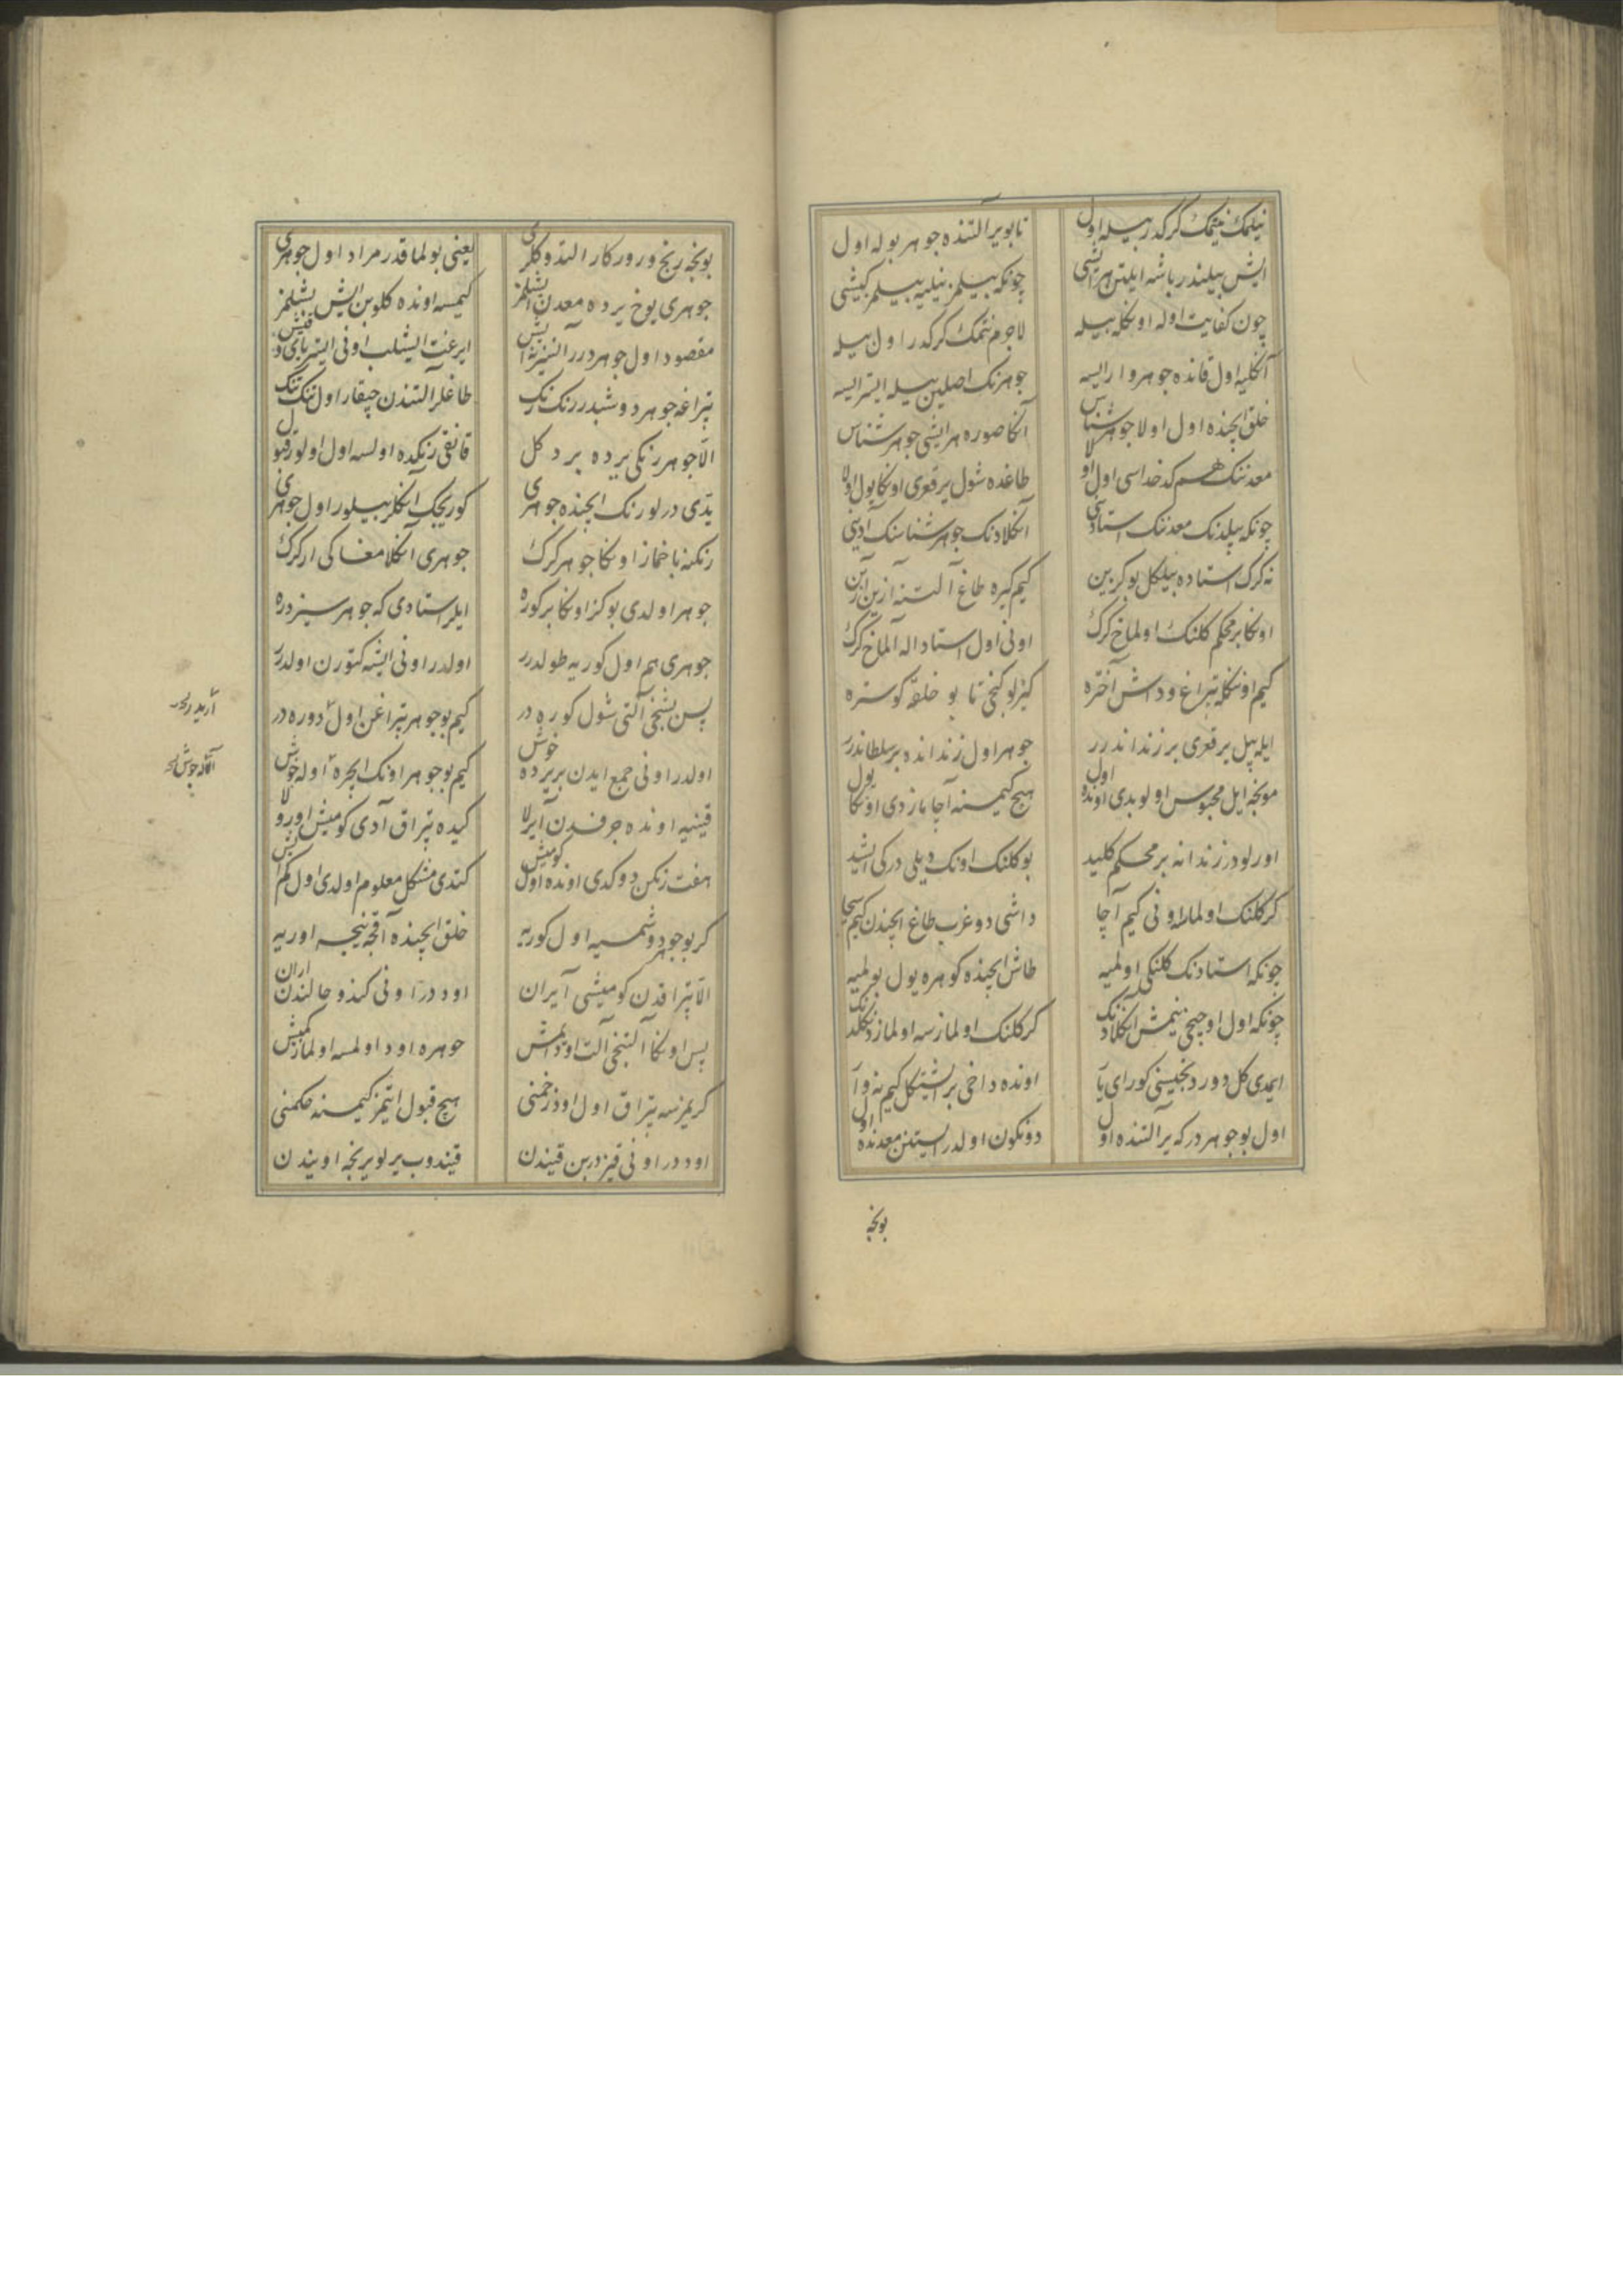 نیلمك نیتمك گرکدر بیله اول تا بو یر آلتنده جوهر بوله اول
ایش بیلندر باشه ایلتن هر ایشی چونکه بیلمز نیلیه بیلمز کیشی
چون کفایت اوله اونکله بیله لاجرم نتمك کرکدر اول بیله
آنکلیه اول قانده جوهر وار ایسه جوهرنك اصلین بیله ایستر ایسه
خلق ایچنده اول اولا جوهر شناس آنکا صوره هر ایشی جوهر شناس
معدننك هم کدخداسی اول اولا طاغده شول یر قعری اونکا یول اولا
چونکه بیلدنك معدننك استادینی آنکلادنك جوهر شناسنك آدینی
نه کرك استاده بیلکل بو کزین کیم کیره طاغ آلتنه آزین آزین
اونکا بر محکم کلنك اولماخ کرك اونی اول استاد اله آلماخ کرك
کیم اونکله تپراغ و داش آختره کیزلو کنجی تا بو خلقه کوستره
ایله بیل یر قعری بر زنداندرر جوهر اول زندانده بر سلطاندرر
مونجه ایل محبوس اولوبدی اونده اول هیچ کیمسنه آچامازدی اونکا یول
اورلودر زندانه بر محکم کلید بو کلنك اونك دیلی درکی ایشد
کر کلنك اولماسا اونی کیم آچا داشی دوغرب طاغ ایچندن کیم سچا
چونکه استادنك کلنکی اولمیه طاش ایچنده کوهره یول بولمیه
چونکه اول اوچنجی نیمش آنکلادنك کر کلنك اولمازسه اولماز دنکلدنك
ایمدی کل دوردنجیسنی کور ای یار اونده داخی بر ایشیتکل کیم نه وار
اول بو جوهر درکه یر آلتنده اول دونکون اولدر ایستنن معدنده اول
بونجه
بونجه رنج و روزکار التدوکلری یعنی بولماقدر مراد اول جوهری
جوهری یوخ یرده معدن ایشلمز کیمسه اونده کلوبن ایش بشلمز
مقصود اول جوهردرر النیز ایش ایرغت ایشلب اونی ایستر یای و قیش
تپراغه جوهر دوشبدر رنك رنك طاغلر آلتندن چیقار اول تنك تنك
الا جوهر رنکی یرده بر دکل قانقی رنکده اولسه اول اولور قبول
یدی درلو رنك ایچنده جوهری کوریجك آنکلر بیلور اول جوهری
رنکنه باخماز اونکا جوهر کرك جوهری آنکلامغا کی ار کرك
جوهر اولدی بو کز اونکا بر کوره ایلر استادی که جوهر سیزدره
جوهری هم اول کوریه طولدرر اولدر اونی ایشه کتورن اولدرر
پس بشنجی آلتی شول کوره در کیم بو جوهر تپراغن اول دوره در
اولدر اونی جمع ایدن بر یرده خوش کیم بو جوهر اونك ایچره اوله جوش
قینیه اونده جرفدن آیرلا کیده تپراق آدی کومیش اورولا
هفت رنکن دوکدی اونده اول کومیش کتدی مشکل معلوم اولدی اول کم ایش
کر بو جوهر دوشمسیه اول کوریه خلق ایچنده آقچه نیجه اوریه
الا تپراقدن کومیشی آیران اود درر اونی کندو حالندن اران
پس اونکا آلتنجی آلت اود ایمش جوهره اود اولمسه اولماز کمیش
کریمزسه تپراق اول اود زخمنی هیچ قبول ایتمز کیمسنه حکمنی
اود درر اونی قیزدربن قیندن قیندوب یرلو یرنجه اویندن